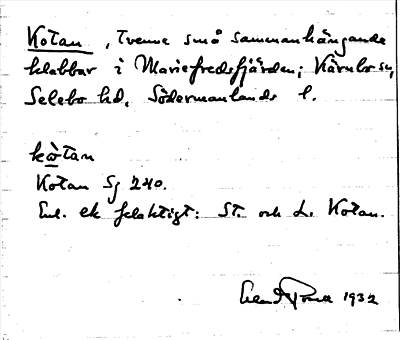 Kotan, Tvenne små sammanhängande
klabbar i Mariefredsfjärden; Kärnbo sn,
Selebo hd, Södermanlands l.
kòtan
Kotan Sj 240.
Enl. ek felaktigt: St. och L. Kotan.
1932